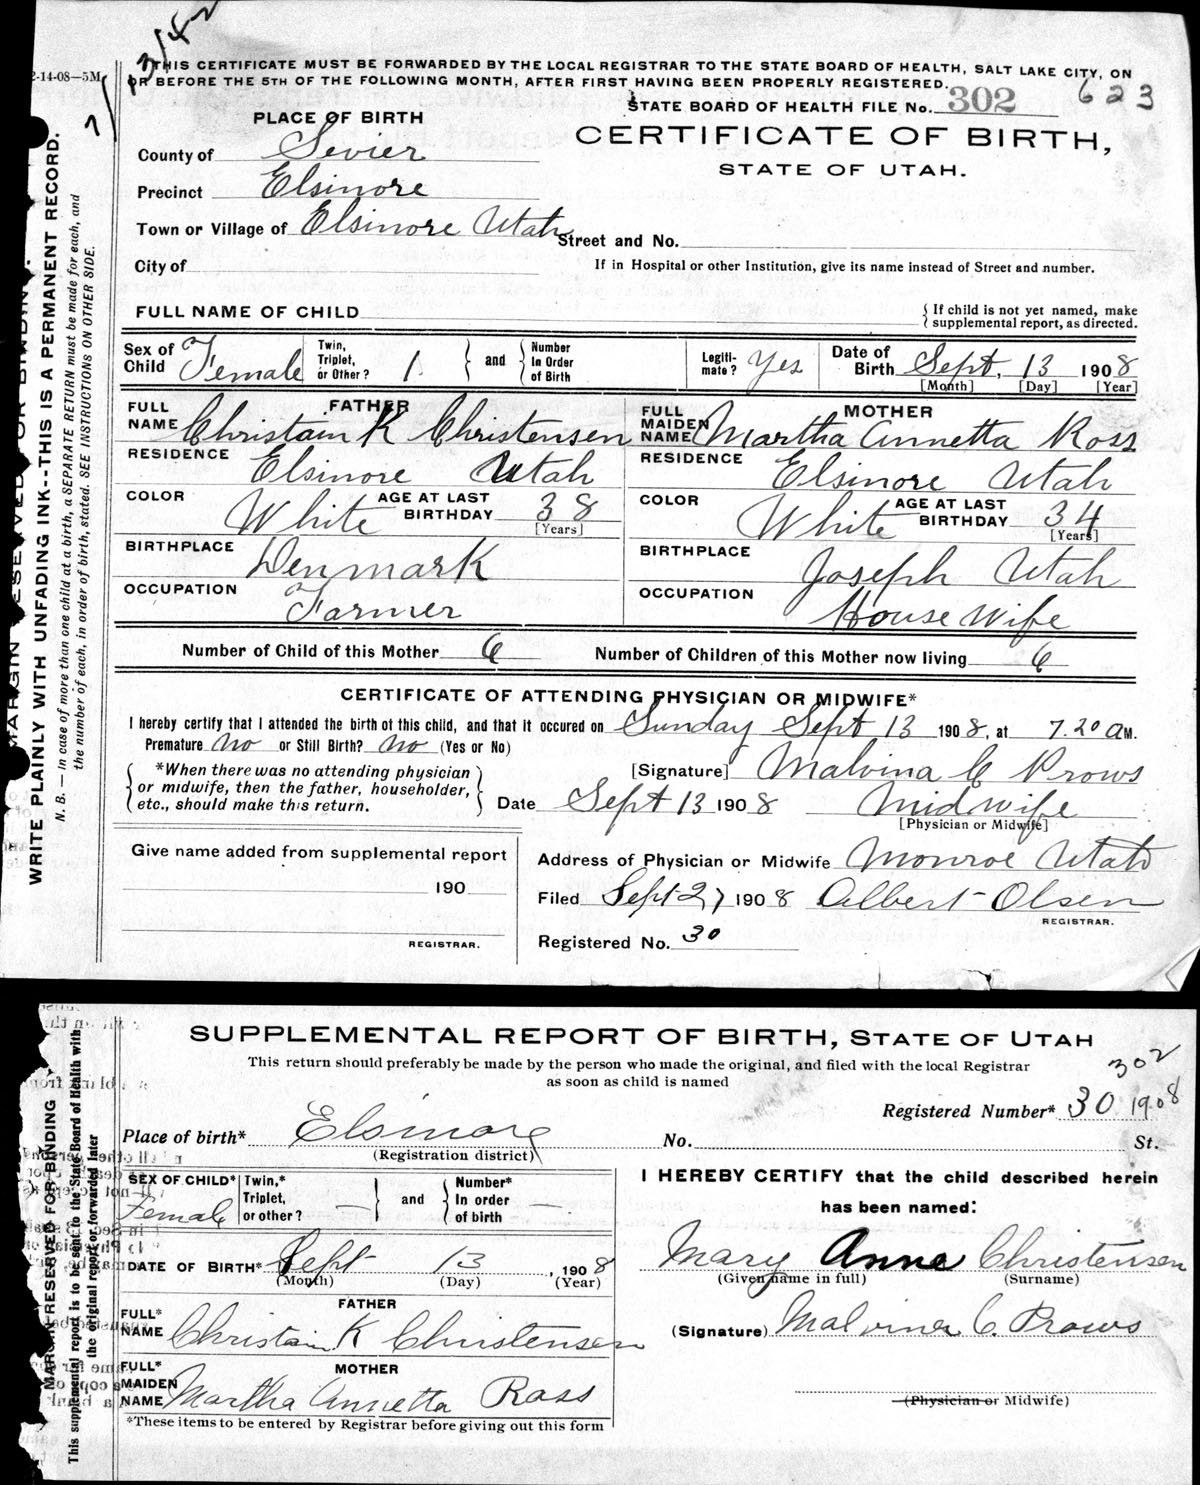 3/42
2-14-08—5M
THIS CERTIFICATE MUST BE FORWARDED BY THE LOCAL REGISTRAR TO THE STATE BOARD OF HEALTH, SALT LAKE CITY, ON
OR BEFORE THE 5TH OF THE FOLLOWING MONTH, AFTER FIRST HAVING BEEN PROPERLY REGISTERED.
STATE BOARD OF HEALTH FILE No. 302 623
CERTIFICATE OF BIRTH,
STATE OF UTAH.
PLACE OF BIRTH
County of Sevier
Precinct Elsinore
Town or Village of Elsinore Utah
Street and No.
City of
If in Hospital or other Institution, give its name instead of Street and number.
FULL NAME OF CHILD
{ If child is not yet named, make
supplemental report, as directed.
Sex of Child Female
Twin, Triplet, or Other? 1 } and { Number In Order of Birth
Legiti-mate? Yes
Date of Birth Sept. 13 1908
[Month] [Day] [Year]
FATHER
FULL NAME Christain K Christensen
RESIDENCE Elsinore Utah
COLOR White AGE AT LAST BIRTHDAY 38
[Years]
BIRTHPLACE Denmark
OCCUPATION Farmer
MOTHER
FULL MAIDEN NAME Martha Annetta Ross
RESIDENCE Elsinore Utah
COLOR White AGE AT LAST BIRTHDAY 34
[Years]
BIRTHPLACE Joseph Utah
OCCUPATION House Wife
Number of Child of this Mother 6 Number of Children of this Mother now living 6
CERTIFICATE OF ATTENDING PHYSICIAN OR MIDWIFE*
I hereby certify that I attended the birth of this child, and that it occured on Sunday Sept 13 1908, at 7.20 AM.
Premature No or Still Birth? No (Yes or No)
{ *When there was no attending physician
or midwife, then the father, householder,
etc., should make this return. }
[Signature] Malvina C Prows
Date Sept 13 1908 Midwife
[Physician or Midwife]
Give name added from supplemental report
190
REGISTRAR.
Address of Physician or Midwife Monroe Utah
Filed Sept 27 1908 Albert Olsen
REGISTRAR.
Registered No. 30
MARGIN RESERVED FOR BINDING.
WRITE PLAINLY WITH UNFADING INK--THIS IS A PERMANENT RECORD.
N. B. — In case of more than one child at a birth, a SEPARATE RETURN must be made for each, and
the number of each, in order of birth, stated. SEE INSTRUCTIONS ON OTHER SIDE.
SUPPLEMENTAL REPORT OF BIRTH, STATE OF UTAH
This return should preferably be made by the person who made the original, and filed with the local Registrar
as soon as child is named
302
Registered Number* 30 1908
Place of birth* Elsinore No. St.
(Registration district)
SEX OF CHILD* Female
Twin,* Triplet, or other? — } and { Number* In order of birth —
DATE OF BIRTH* Sept 13, 1908
(Month) (Day) (Year)
FATHER
FULL* NAME Christain K Christensen
MOTHER
FULL* MAIDEN NAME Martha Annetta Ross
*These items to be entered by Registrar before giving out this form
I HEREBY CERTIFY that the child described herein
has been named:
Mary Anne Christensen
(Given name in full) (Surname)
(Signature) Malvina C. Prows
(Physician or Midwife)
MARGIN RESERVED FOR BINDING
This supplemental report is to be sent to the State Board of Health with
the original report or forwarded later